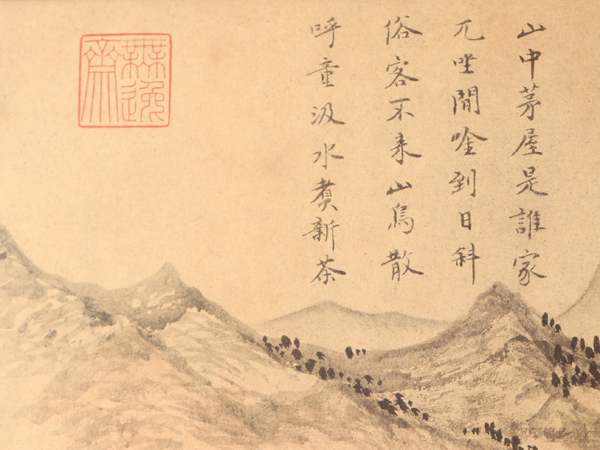 山中茅屋是誰家
兀坐閒唫到日斜
俗客不来山鳥散
呼童汲水煮新茶
無逸齋